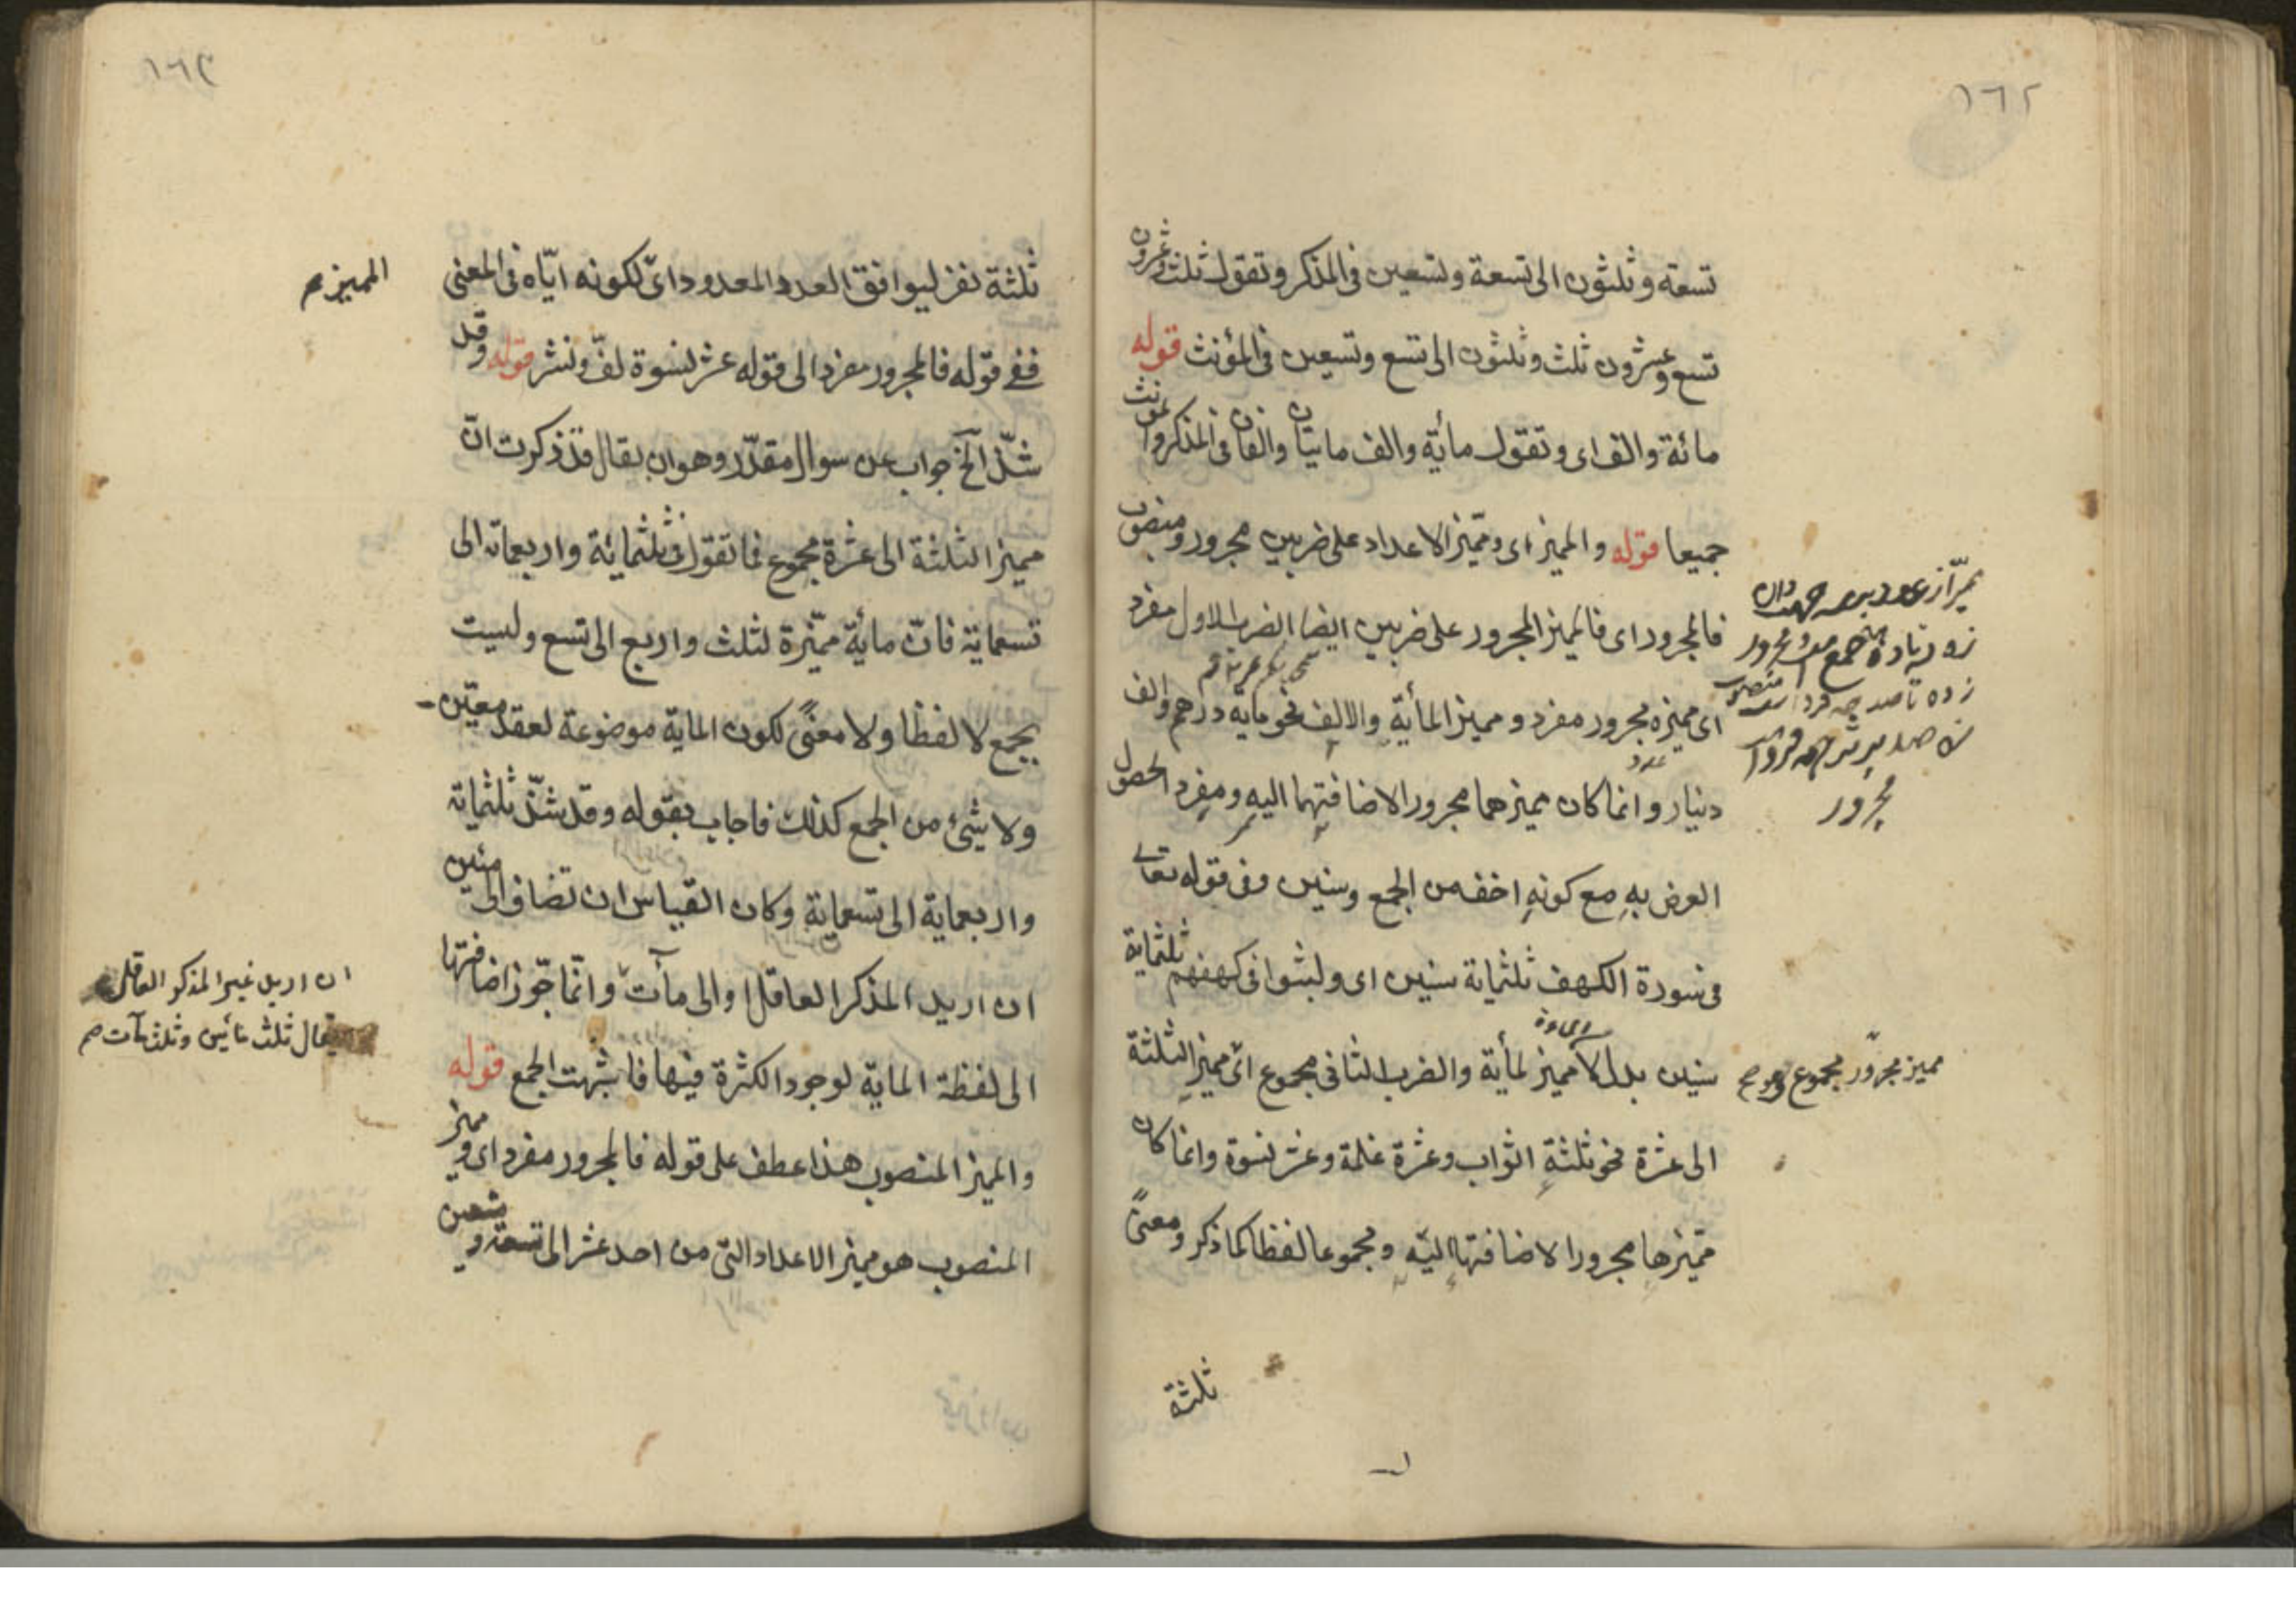 ١٦٢
تسعة وثلثون الى تسعة وتسعين فى المذكر وتقول ثلث وعشرون
تسع وعشرون ثلث وثلثون الى تسع وتسعين فى المؤنث قوله
مائة والف اى وتقول مأية والف مايتان والفان فى المذكر والمؤنث
جميعا قوله والمميز اى ومميز الاعداد على ضربين مجرور ومنصوب
فالمجرور اى فالمميز المجرور على ضربين ايضا الضرب الاول مفرد
اى مميزه مجرور مفرد ومميز المأية والالف نحو مايه درهم والف
دينار وانما كان مميزهما مجرورا لاضافتهما اليه ومفردا لحصول
الغرض به مع كونه اخف من الجمع وسنين وفى قوله تعا
فى سورة الكهف ثلثماية سنين اى ولبثوا فى كهفهم ثلثماية
سنين بدل لا مميز لمأية والضرب الثانى مجموع اى مميز الثلثة
الى عشرة نحو ثلثة اثواب وعشرة غلمة وعشر نسوة وانما كان
مميزها مجرورا لاضافتها اليه ومجموعا لفظا كما ذكر ومعنىً
ثلثة
مجرور
مميز مجرور مجموع
ثلثة نفر ليوافق العدد المعدود اى لكونه ايّاه فى المعنى
ففى قوله فالمجرور مفرد الى قوله عشر نسوة لفّ ونشر قوله وقد
شذّ الخ جواب عن سوال مقدّر وهو ان يقال قد ذكرت انّ
مميز الثلثة الى عشرة مجموع فما تقول فى ثلثمائة واربعماية الى
تسعماية فانّ مأية مميّزة لثلث واربع الى تسع وليست
بجمع لا لفظا ولا معنىً لكون الماية موضوعة لعقد معيّن
ولا شئ من الجمع كذلك فاجاب بقوله وقد شذّ ثلثماية
واربعماية الى تسعماية وكان القياس ان تضاف الى مئين
ان اريد المذكر العاقل او الى مآت وانّما جوّز اضافتها
الى لفظة الماية لوجود الكثرة فيها فاشبهت الجمع قوله
والمميز المنصوب هذا عطف على قوله فالمجرور مفرد اى ومميز
المنصوب هو مميز الاعداد التى من احد عشر الى تسعة وتسعين
المميز صح
ان اريد غير المذكر العاقل
يقال ثلث مائين وثلث مآت صح